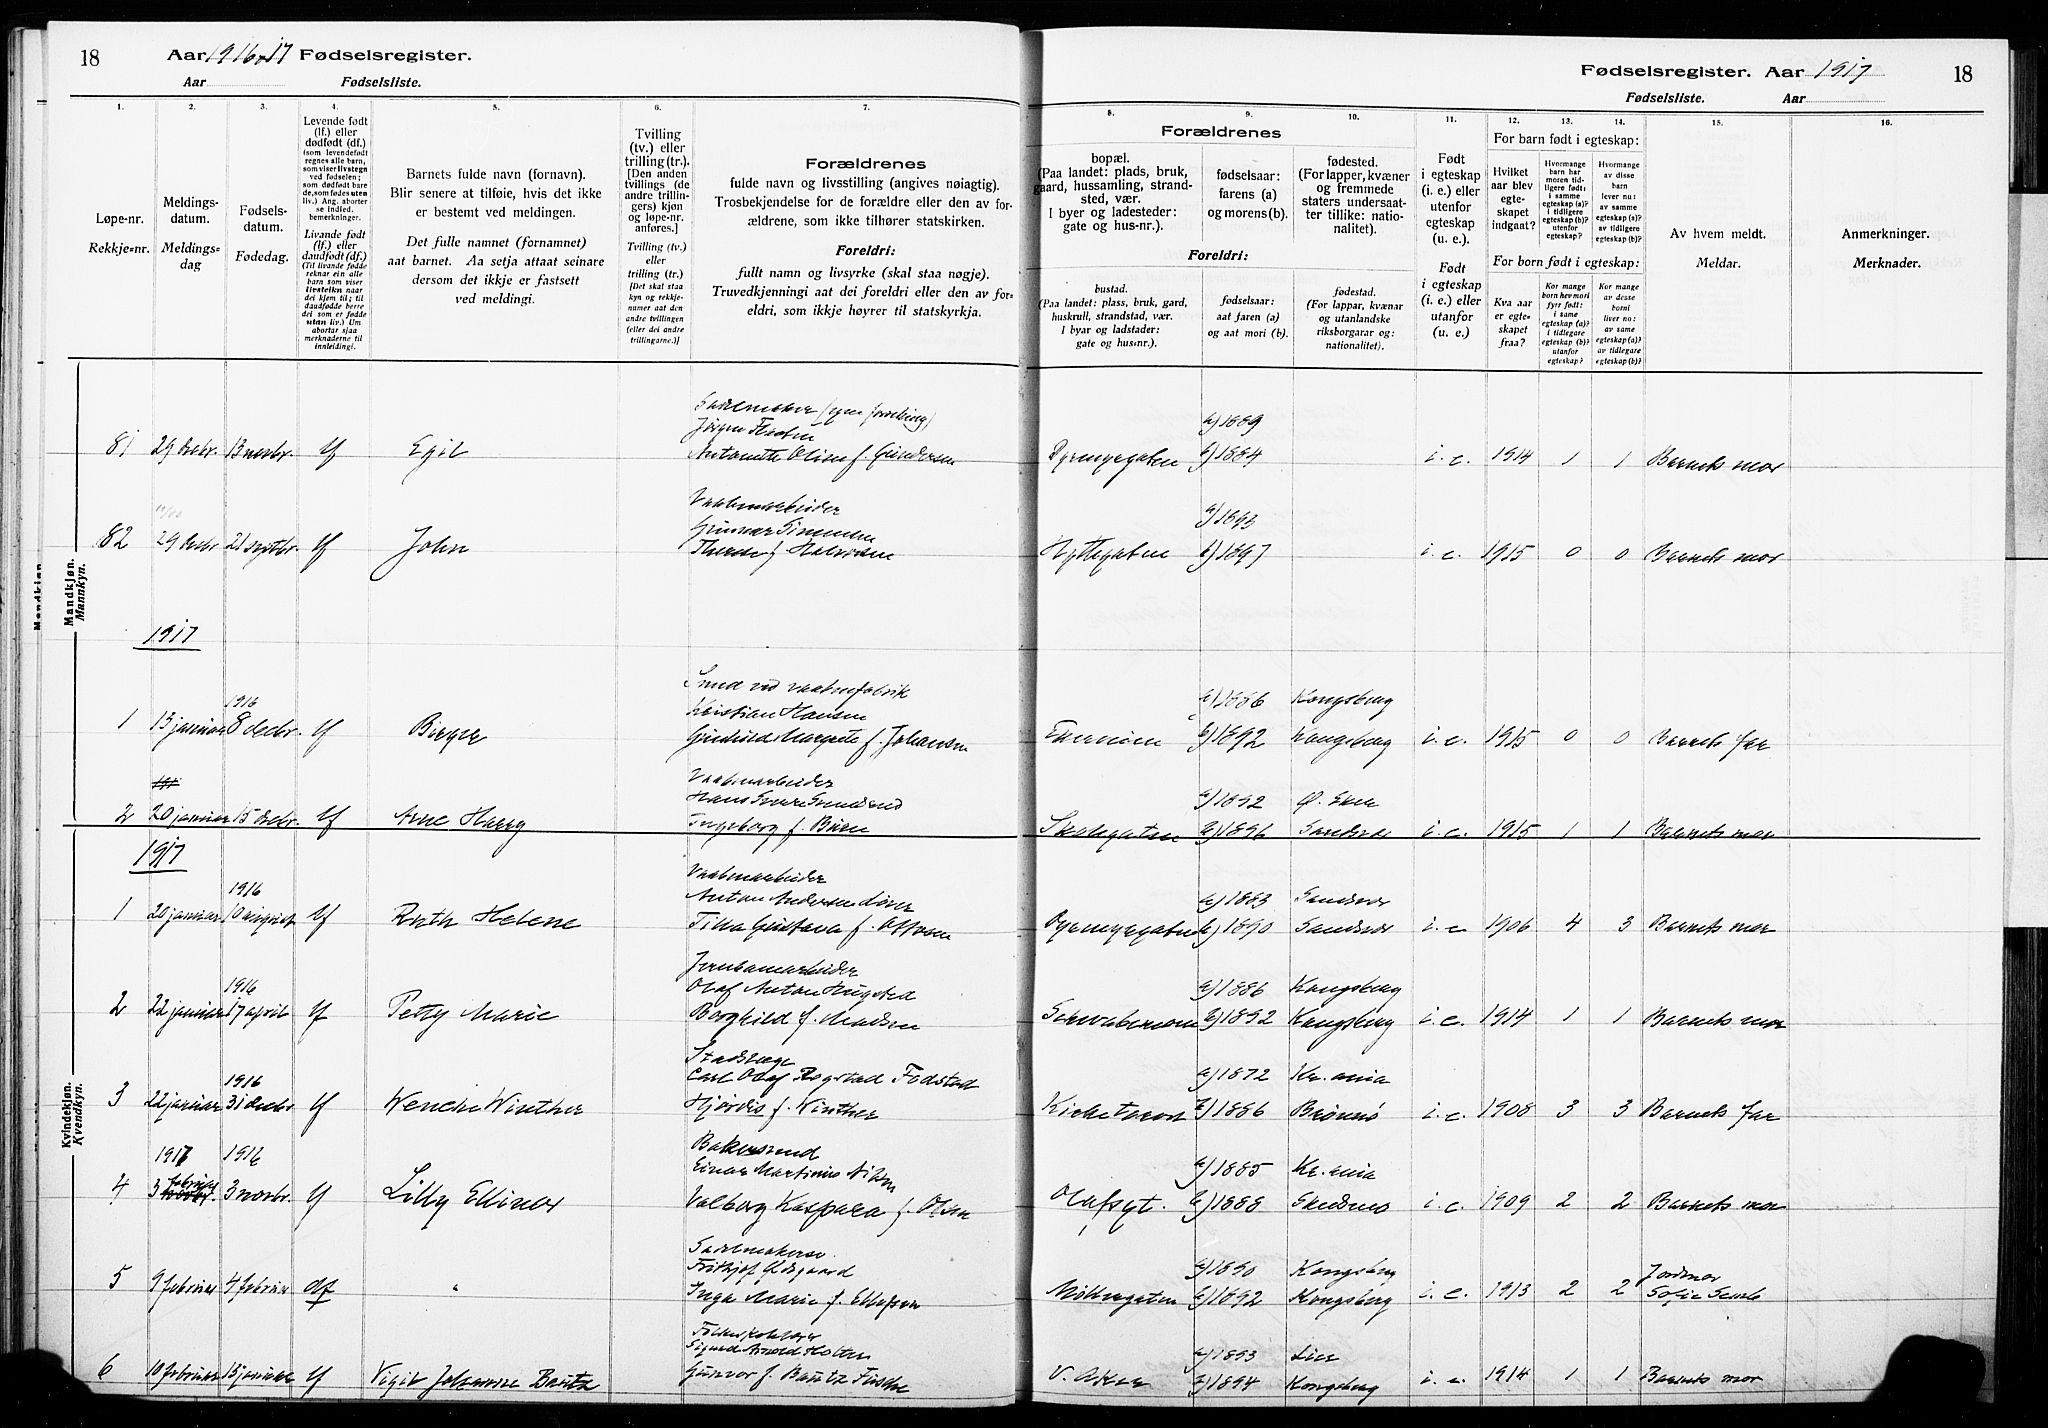 18
Aar 1916 o 17 Fødselsregister.
Aar Fødselsliste.
Fødselsregister. Aar 1917
18
Fødselsliste. Aar
1.
2.
3.
4.
5.
6.
7.
8.
9.
10.
11.
12.
13.
14.
15.
16.
Løpe-nr.
Rekkje-nr.
Meldings-
datum.
Meldings-
dag
Fødsels-
datum.
Fødedag.
Levende født
(lf.) eller
dødfødt (df.)
(som levendefødt
regnes alle barn,
som viser livstegn
ved fødselen;
som dødfødt bare
de, som fødes uten
liv.) Ang. aborter
se indled.
bemerkninger.
Livande født
(lf.) eller
daudfødt (df.)
(Til livande fødde
reknar ein alle
barn som viser
livsteikn naar
dei kjem til; til
daudfødde berre
dei som er fødde
utan liv.) Um
abortar sjaa
merknaderne til
innleidingi.
Barnets fulde navn (fornavn).
Blir senere at tilføie, hvis det ikke
er bestemt ved meldingen.
Det fulle namnet (fornamnet)
aat barnet. Aa setja attaat seinare
dersom det ikkje er fastsett
ved meldingi.
Tvilling
(tv.) eller
trilling (tr.).
[Den anden
tvillings (de
andre trillin-
gers) kjøn
og løpe-nr.
anføres.]
Tvilling (tv.)
eller
trilling (tr.)
[Det skal staa
kyn og rekkje-
numer aat den
andre tvillingen
(eller dei andre
trillingarne.)]
Forældrenes
fulde navn og livsstilling (angives nøiagtig).
Trosbekjendelse for de forældre eller den av for-
ældrene, som ikke tilhører statskirken.
Foreldri:
fullt namn og livsyrke (skal staa nøgje).
Truvedkjenningi aat dei foreldri eller den av for-
eldri, som ikkje høyrer til statskyrkja.
Forældrenes
bopæl.
(Paa landet: plads, bruk,
gaard, hussamling, strand-
sted, vær.
I byer og ladesteder:
gate og hus-nr.).
fødselsaar:
farens (a)
og morens (b).
fødested.
(For lapper, kvæner
og fremmede
staters undersaat-
ter tillike: natio-
nalitet).
Foreldri:
bustad.
(Paa landet: plass, bruk, gard,
huskrull, strandstad, vær.
I byar og ladstader:
gate og hus-nr.).
fødselsaar:
aat faren (a)
og aat mori (b).
fødestad.
(For lappar, kvænar
og utanlandske
riksborgarar og:
nationalitet).
Født
i egteskap
(i. e.) eller
utenfor
egteskap
(u. e.).
Født
i egteskap
(i. e.) eller
utanfor
(u. e.)
For barn født i egteskap:
Hvilket
aar blev
egte-
skapet
indgaat?
Hvormange
barn har
moren tid-
ligere født:
i samme
egteskap (a)?
i tidligere
egteskap (b)?
utenfor
egteskap?
Hvormange
av disse
barn
lever nu:
av samme
egteskap (a)?
av tidligere
egteskap (b)?
For born født i egteskap:
Kva aar
er egte-
skapet
fraa?
Kor mange
born hev mori
fyrr født:
i same
egteskap (a)?
i tidlegare
egteskap (b)?
utanfor
egteskap?
Kor mange
av desse
borni
liver no:
av same
egteskap (a)?
av tidlegare
egteskap (b)?
Av hvem meldt.
Meldar.
Anmerkninger.
Merknader.
Mandkjøn.
Mannkyn.
81 29 decbr. 13 novbr. lf Egil
Antonette Oline f. Gundersen
Dyrmyrgaten a) 1889 b) 1884 i. e. 1914 1 1 Barnets mor
82 29 decbr 21 septbr. lf John
Vaabenarbeider
Gunnar Simensen
Therese f. Halvorsen
Hyttegaten a) 1893 b) 1897 i. e. 1915 0 0 Barnets mor
1917
1 13 januar 1916 8 decbr. lf Birger
Smed ved vaabenfabrik
Kristian Hansen
Gunhild Margrete f. Johansen
a) 1886 Kongsberg
b) 1892 Kongsberg i. e. 1915 0 0 Barnets far
2 20 januar 15 decbr. lf Arne Harry
Vaabenarbeider
Ingeborg f.
Skolegaten a) 1892 Ø. Eker
b) 1896 Sandsvær i. e. 1915 1 1 Barnets mor
Kvindekjøn.
Kvendkyn.
1917
1 20 januar 1916 10 august lf Ruth Helene
Vaabenarbeider
Anton Andersen
Tilla Gustava f. Ottosen
Dyrmyrgaten a) 1883 Sandsvær
b) 1890 Sandsvær i. e 1906 4 3 Barnets mor
2 22 januar 1916 17 april lf Petty Marie
Jernbanearbeider
Olaf Anton Hugsted
Borghild f. Madsen
a) 1886 Kongsberg
b) 1892 Kongsberg i. e. 1914 1 1 Barnets mor
3 22 januar 1916 31 decbr lf Wenche Winther
Stadslæge
Carl Olaf Rogstad Fodstad
Hjørdis f. Winther
Kirketorvet a) 1872 Kr.ania
b) 1886 Brønnø i. e. 1908 3 3 Barnets far
4 1917 3 februar 1916 3 novbr. lf Lilly Ellinor
Bakersvend
Einar Martinius Nilsen
Valborg Kaspara f. Olsen
Olafsgt. a) 1885 Kr.ania
b) 1888 i. e. 1909 2 2 Barnets mor
5 9 februar 4 februar df "
Sadelmakersv.
Frithjof Ødegaard
Inga Marie f. Ellefsen
Møllergaten a) 1890 Kongsberg
b) 1892 Kongsberg i. e. 1913 2 2 Jordmor Sofie
6 10 februar 13 januar lf Vigit Johanne Bautz
Sigurd Arnold Holter
Gunvor f. Bautz
V. Aker a) 1893 Lier
b) 1894 Kongsberg i. e. 1914 1 1 Barnets mor